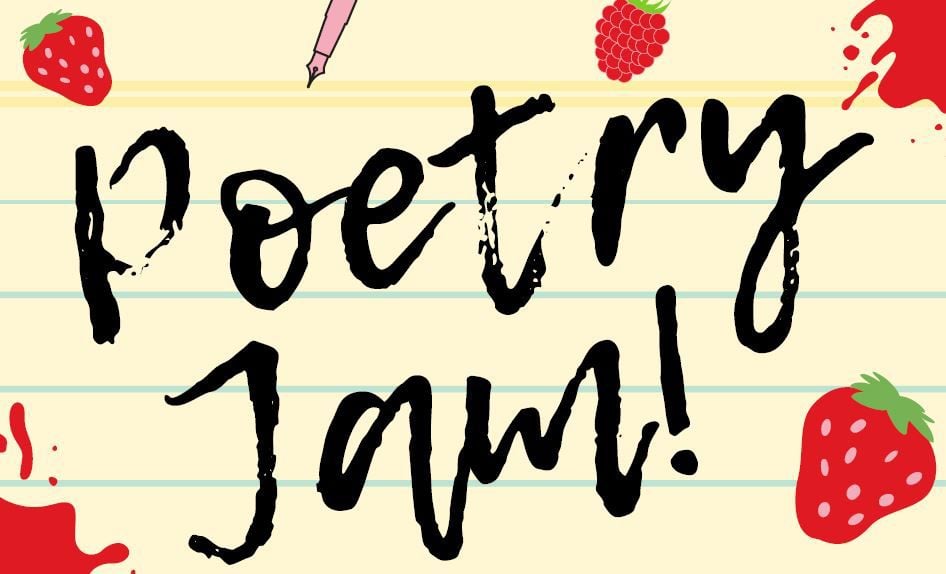 Poetry
Jam!